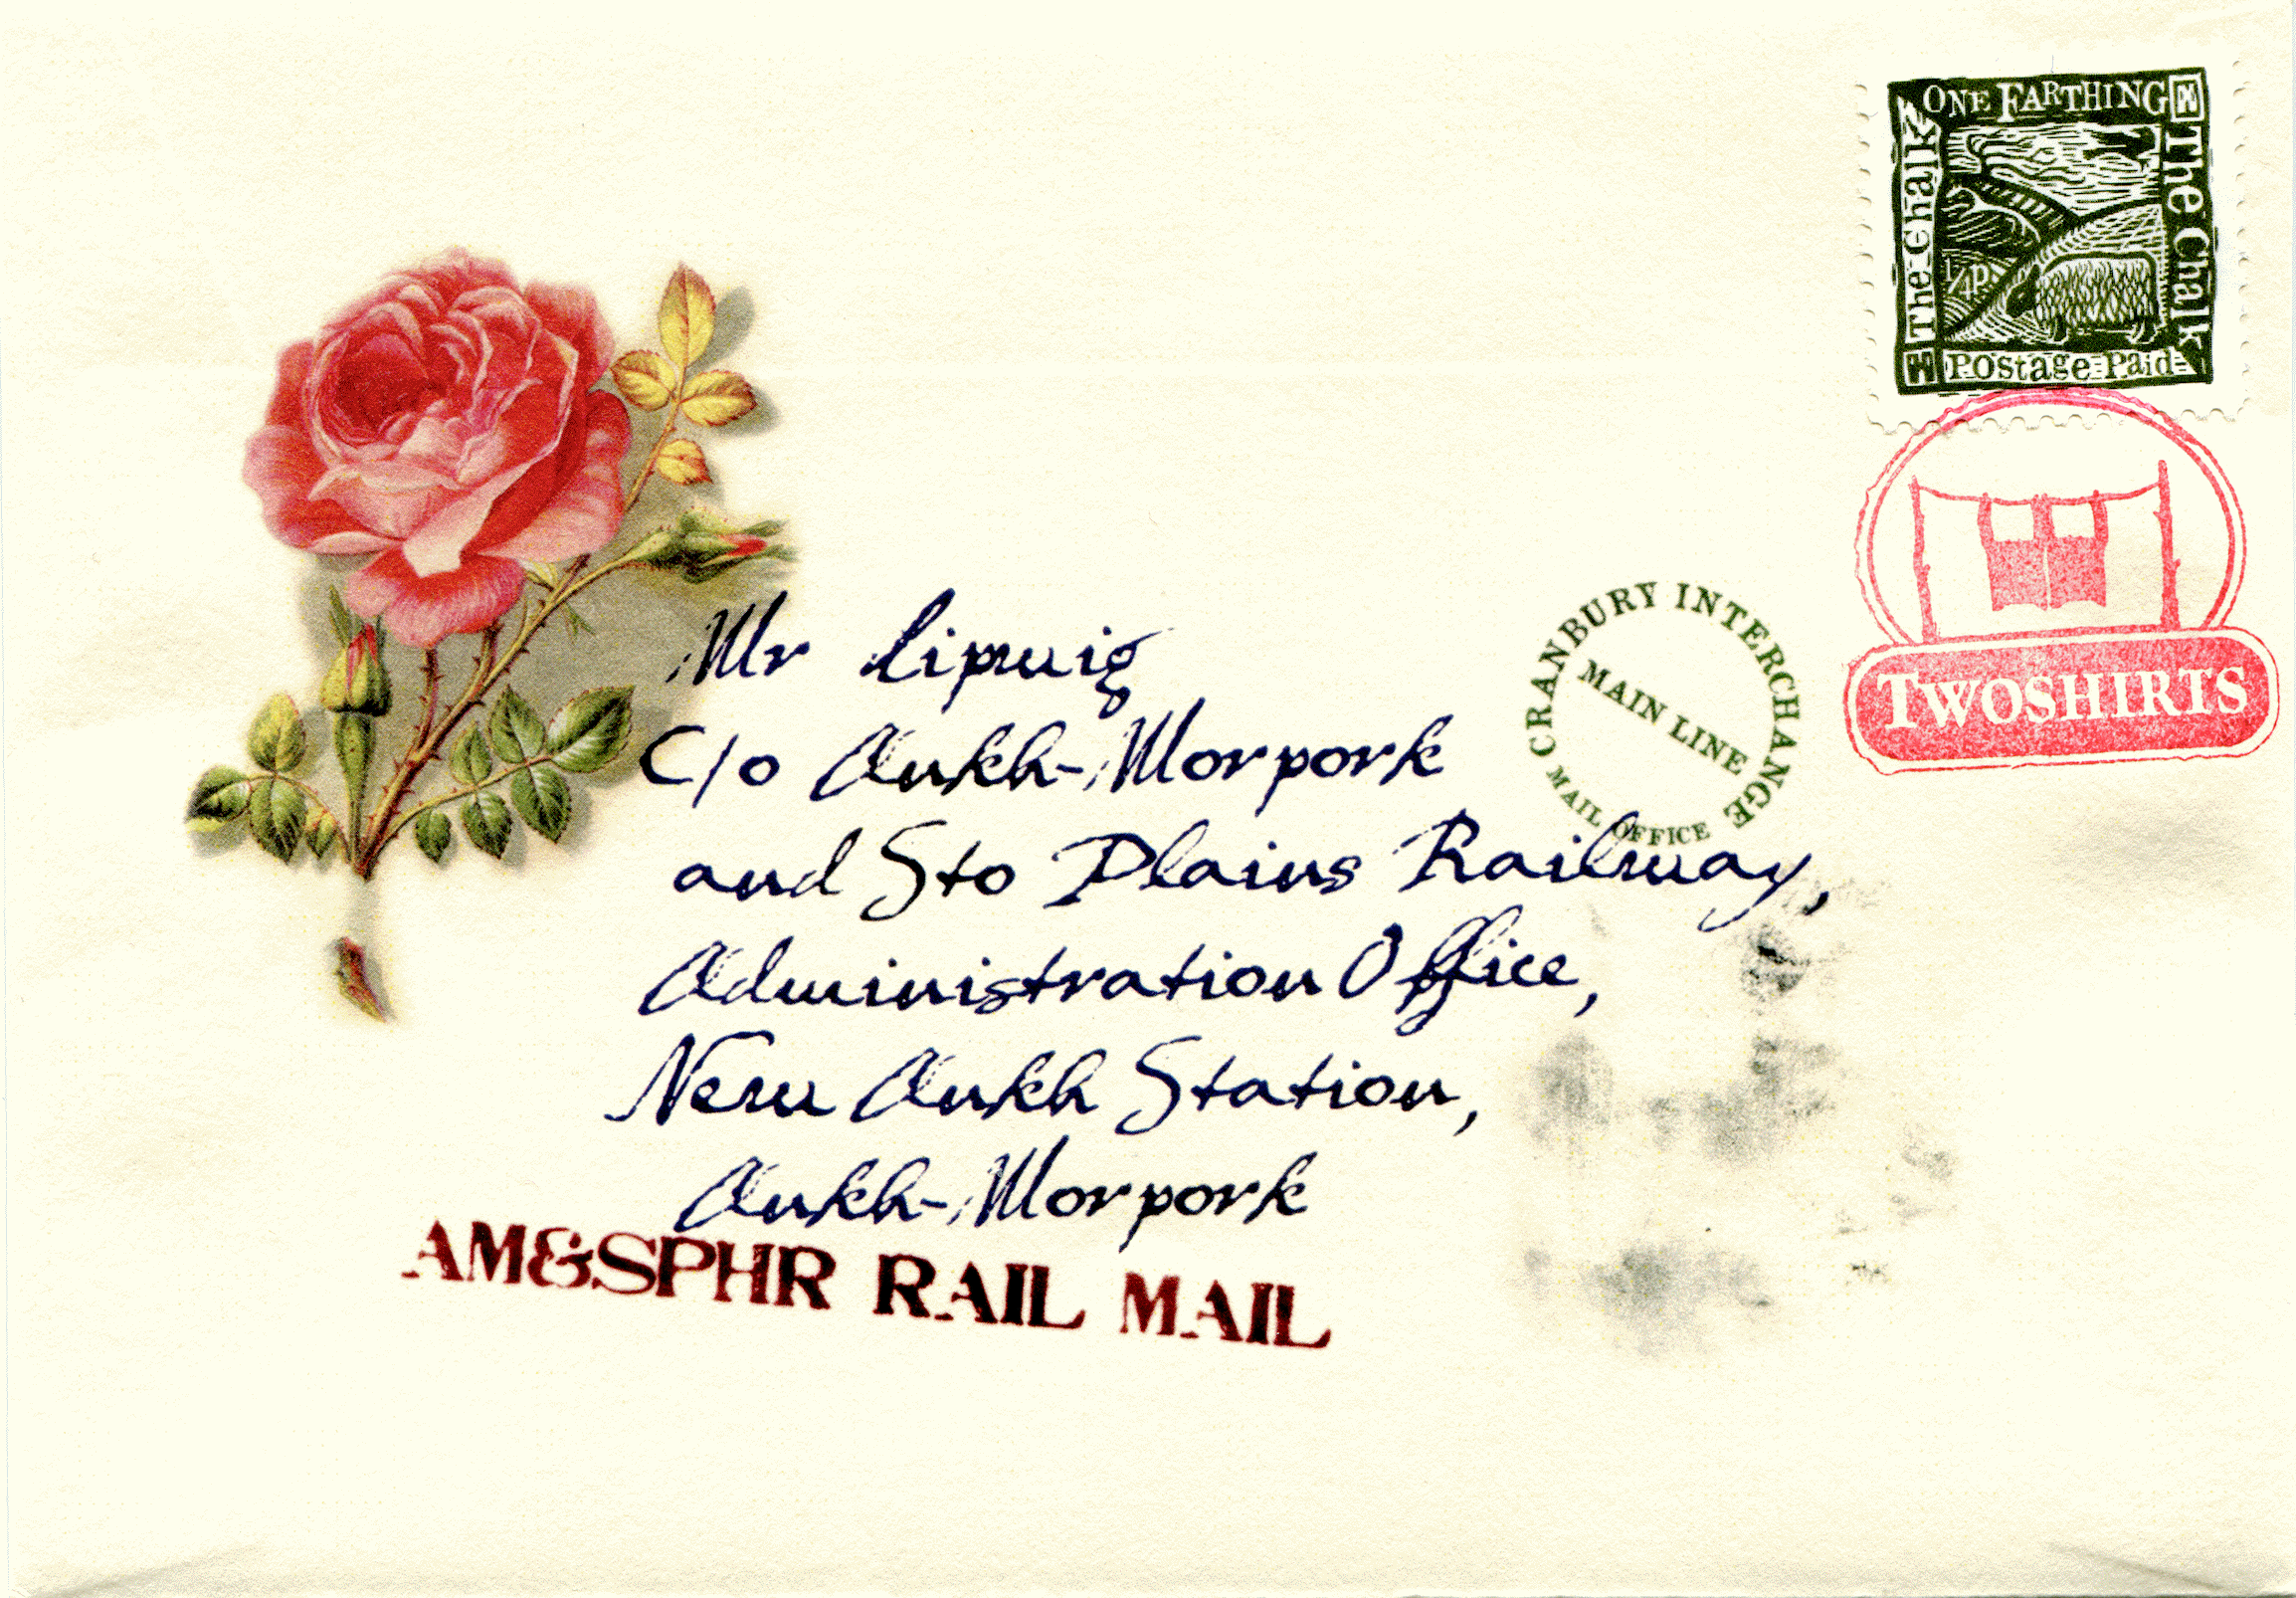 ONE FARTHING
The Chalk
The Chalk
1/4p
Postage Paid
TWOSHIRTS
CRANBURY INTERCHANGE
MAIN LINE
MAIL OFFICE
Mr Lipwig
C/o Ankh-Morpork
and Sto Plains Railway,
Administration Office,
New Ankh Station,
Ankh-Morpork
AM&SPHR RAIL MAIL